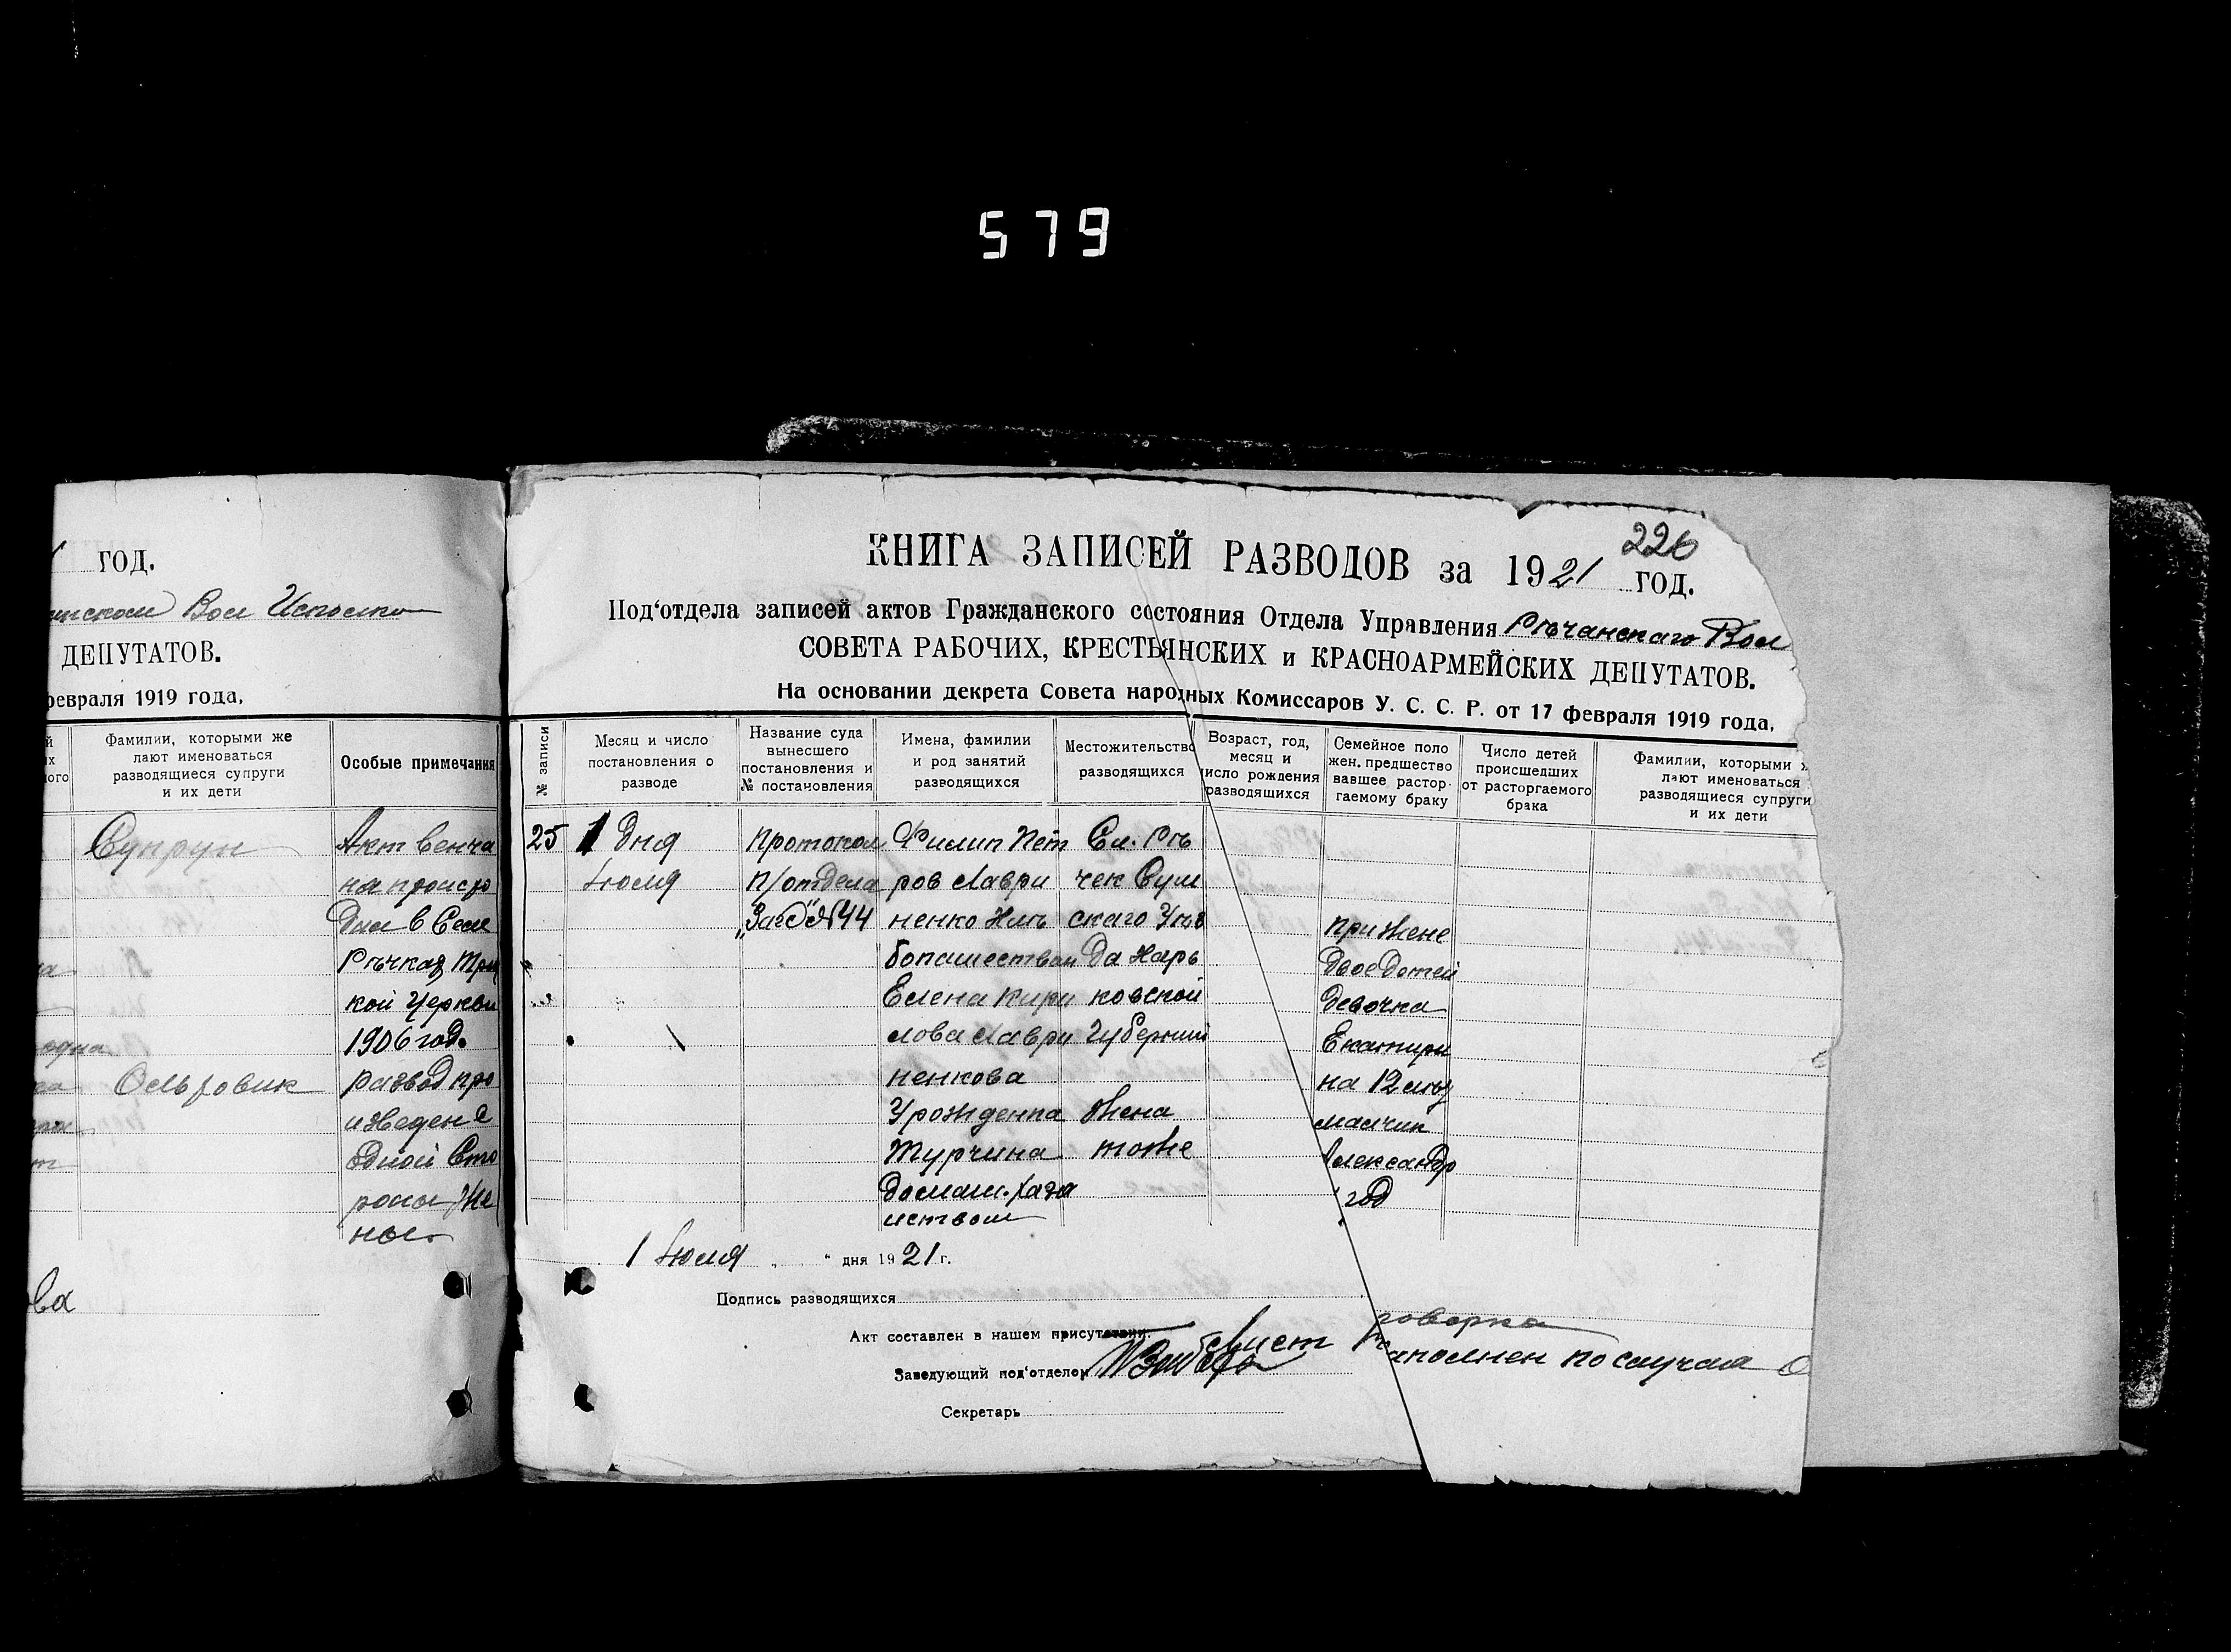 579
ГОД.
Вол Исполко
ДЕПУТАТОВ.
февраля 1919 года,
Фамилии, которыми же
лают именоваться
разводящиеся супруги
и их дети
Особые примечания
Супрун
Акт венча
на происхо
дил в Селе
Рѣчках Трои
кой Церкви
1906 год.
развод про
изведен с
одной Сто
роны Же
ны
226
КНИГА ЗАПИСЕЙ РАЗВОДОВ за 1921 ГОД.
Под'отдела записей актов Гражданского состояния Отдела Управления Рѣчанскаго Вол
СОВЕТА РАБОЧИХ, КРЕСТЬЯНСКИХ и КРАСНОАРМЕЙСКИХ ДЕПУТАТОВ.
На основании декрета Совета народных Комиссаров У. С. С. Р. от 17 февраля 1919 года,
№ записи
Месяц и число
постановления о
разводе
Название суда
вынесшего
постановления и
№ постановления
Имена, фамилии
и род занятий
разводящихся
Местожительство
разводящихся
Возраст, год,
месяц и
число рождения
разводящихся
Семейное поло
жен. предшество
вавшее растор-
гаемому браку
Число детей
происшедших
от расторгаемого
брака
Фамилии, которыми ж
лают именоваться
разводящиеся супруги
и их дети
25
1 Дня
Июля
Протокол
П/отдела
"Загс" №44
Филип Пет
ров Лаври
ненко Хлѣ
бопашеством
Елена Кири
лова Лаври
ненкова
Урожденна
Турчина
домаш. хазя
иством
Сл. Рѣ
чек Сум
скаго Уѣз
да Харь
ковской
Губернии
Жена
тоже
при жене
двое детей
девочка
Екатири
на 12 лѣт
малчик
Александр
год
1 Июля " дня 1921 г.
Подпись разводящихся
Акт составлен в нашем присутствии:
Заведующий под'отделом
Секретарь
Лист
по случаю